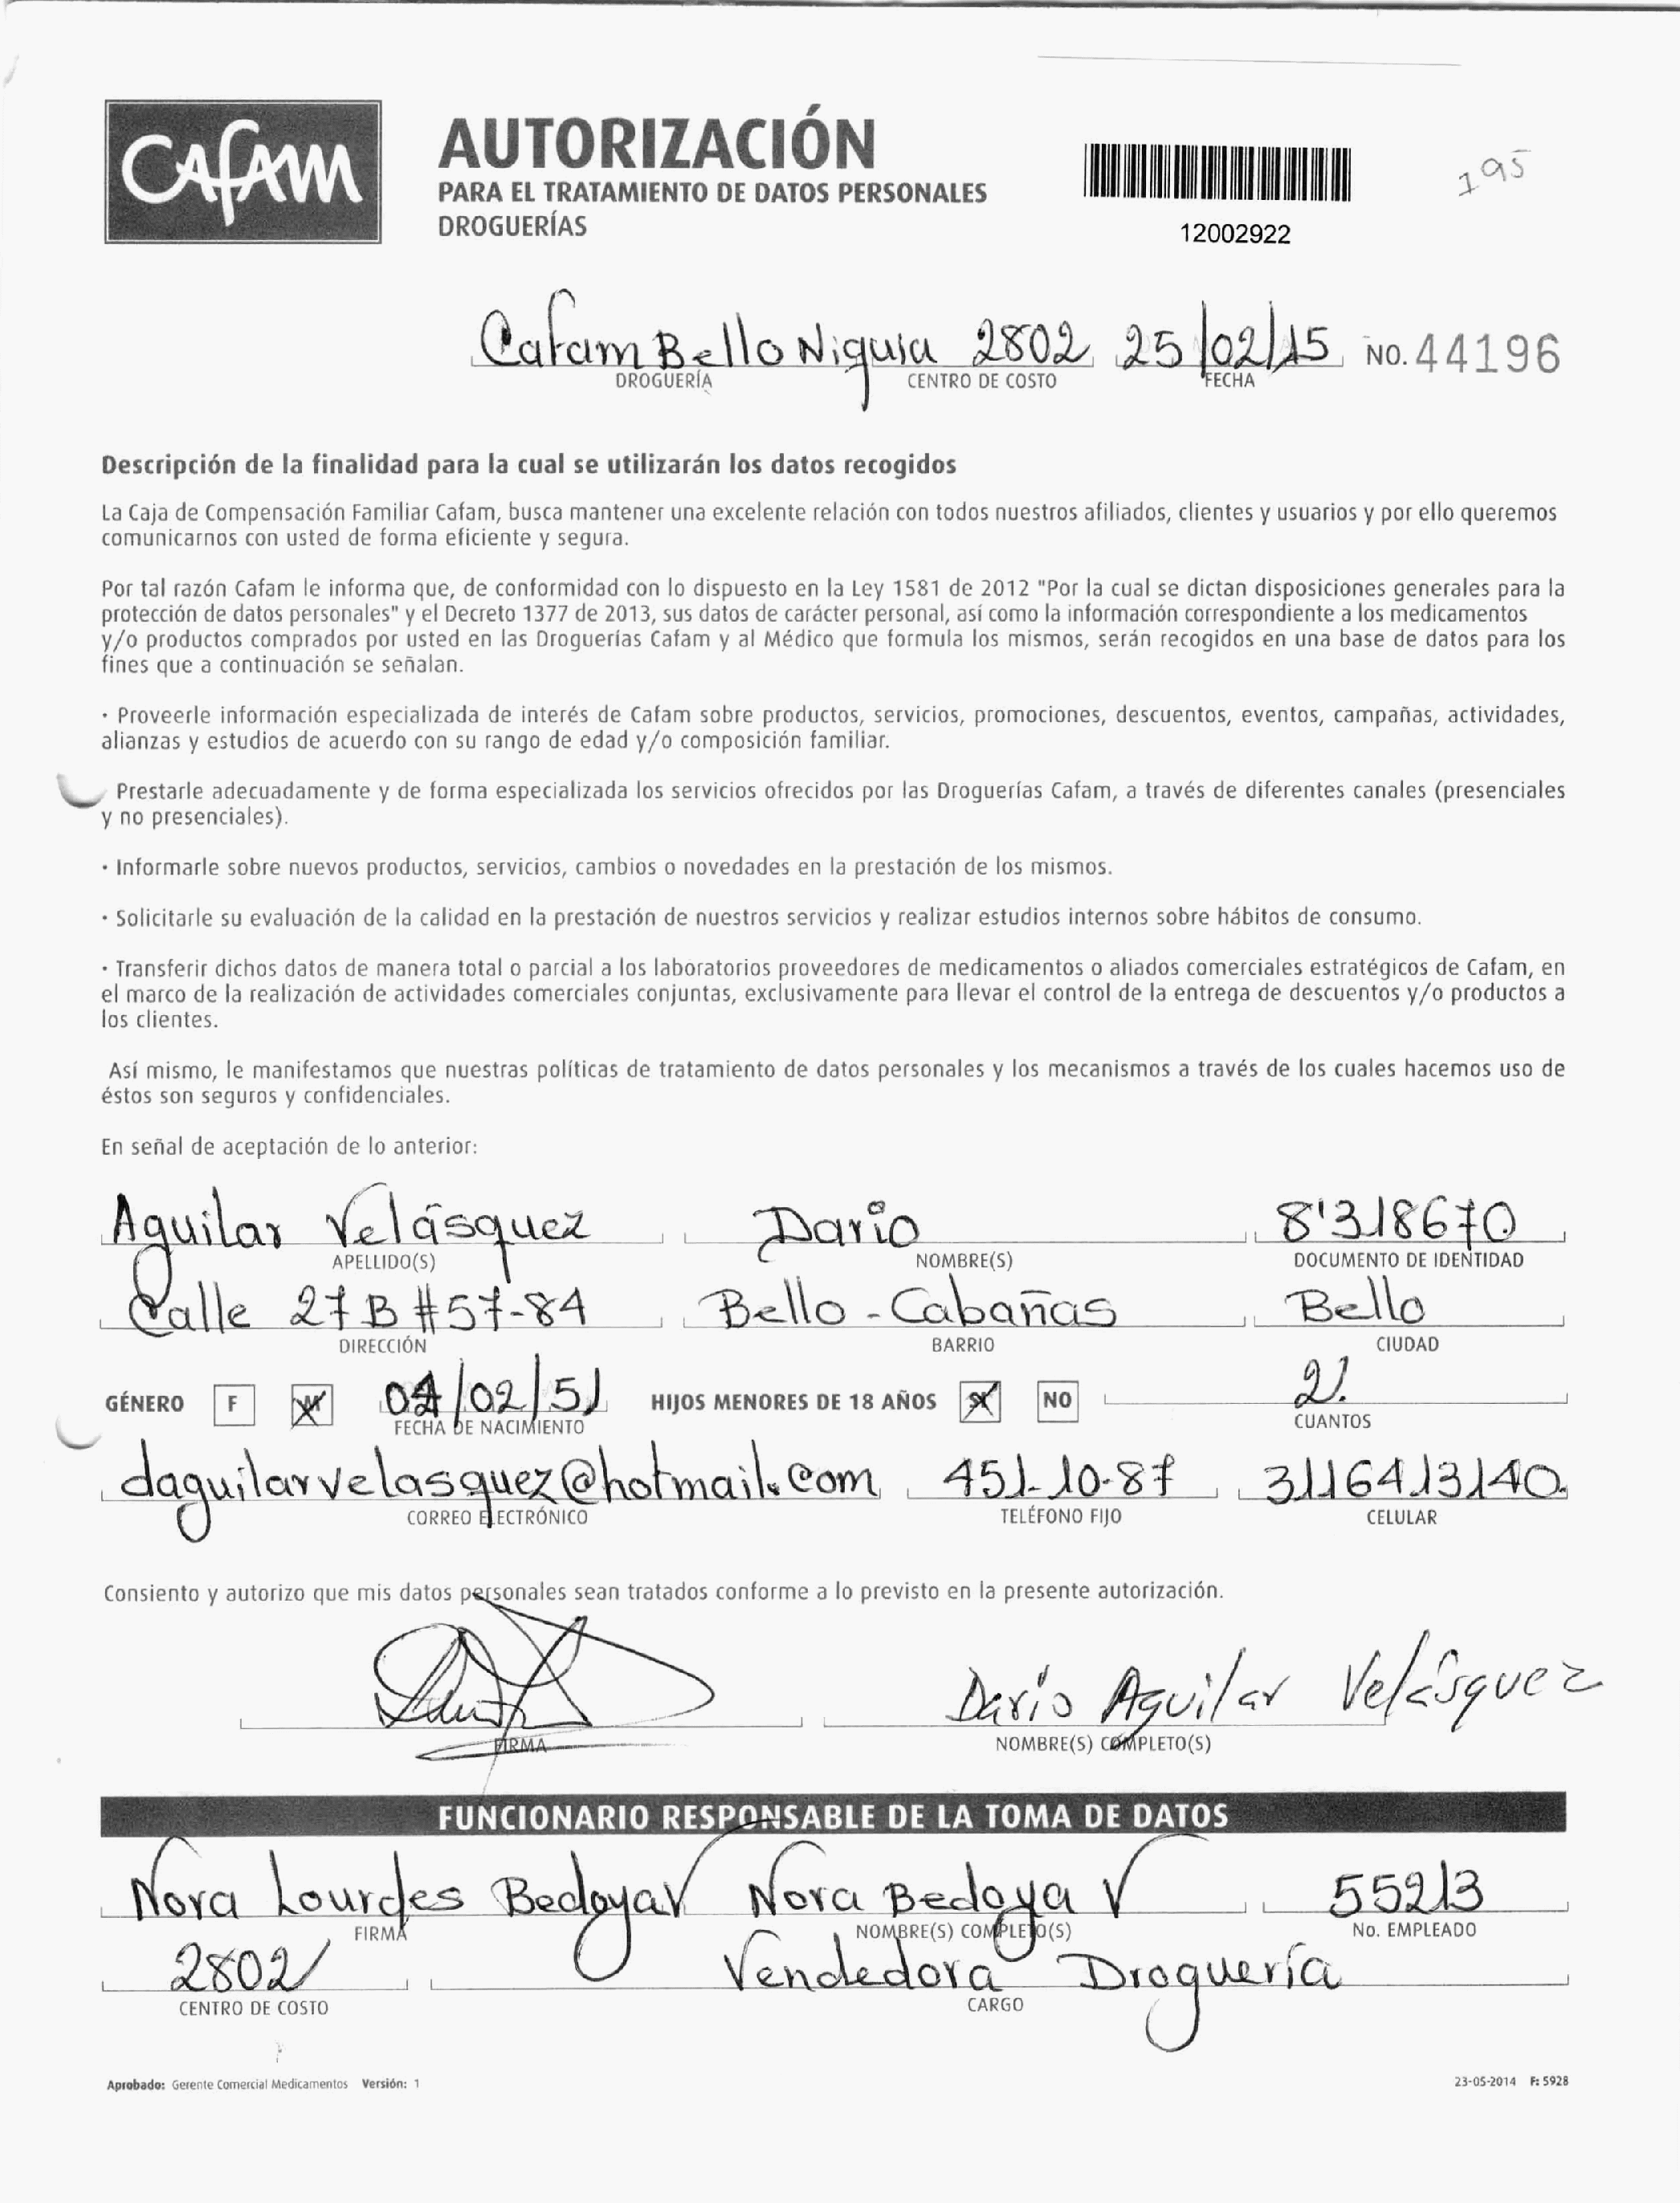 Cafam
AUTORIZACIÓN
PARA EL TRATAMIENTO DE DATOS PERSONALES
DROGUERÍAS
12002922
195
Cafam Bello Niquia 2802 25/02/15 No. 44196
DROGUERÍA CENTRO DE COSTO FECHA
Descripción de la finalidad para la cual se utilizarán los datos recogidos
La Caja de Compensación Familiar Cafam, busca mantener una excelente relación con todos nuestros afiliados, clientes y usuarios y por ello queremos
comunicarnos con usted de forma eficiente y segura.
Por tal razón Cafam le informa que, de conformidad con lo dispuesto en la Ley 1581 de 2012 "Por la cual se dictan disposiciones generales para la
protección de datos personales" y el Decreto 1377 de 2013, sus datos de carácter personal, así como la información correspondiente a los medicamentos
y/o productos comprados por usted en las Droguerías Cafam y al Médico que formula los mismos, serán recogidos en una base de datos para los
fines que a continuación se señalan.
· Proveerle información especializada de interés de Cafam sobre productos, servicios, promociones, descuentos, eventos, campañas, actividades,
alianzas y estudios de acuerdo con su rango de edad y/o composición familiar.
Prestarle adecuadamente y de forma especializada los servicios ofrecidos por las Droguerías Cafam, a través de diferentes canales (presenciales
y no presenciales).
· Informarle sobre nuevos productos, servicios, cambios o novedades en la prestación de los mismos.
· Solicitarle su evaluación de la calidad en la prestación de nuestros servicios y realizar estudios internos sobre hábitos de consumo.
· Transferir dichos datos de manera total o parcial a los laboratorios proveedores de medicamentos o aliados comerciales estratégicos de Cafam, en
el marco de la realización de actividades comerciales conjuntas, exclusivamente para llevar el control de la entrega de descuentos y/o productos a
los clientes.
Así mismo, le manifestamos que nuestras políticas de tratamiento de datos personales y los mecanismos a través de los cuales hacemos uso de
éstos son seguros y confidenciales.
En señal de aceptación de lo anterior:
Aguilar Velásquez Dario 8'318670
APELLIDO(S) NOMBRE(S) DOCUMENTO DE IDENTIDAD
Calle 27B #57-84 Bello - Cabañas Bello
DIRECCIÓN BARRIO CIUDAD
GÉNERO F M 04/02/51 HIJOS MENORES DE 18 AÑOS SI NO 2.
FECHA DE NACIMIENTO CUANTOS
daguilarvelasquez@hotmail.com 451-10-87 3116413140.
CORREO ELECTRÓNICO TELÉFONO FIJO CELULAR
Consiento y autorizo que mis datos personales sean tratados conforme a lo previsto en la presente autorización.
Darío Aguilar Velásquez
FIRMA NOMBRE(S) COMPLETO(S)
FUNCIONARIO RESPONSABLE DE LA TOMA DE DATOS
Nora Lourdes Bedoya V Nora Bedoya V 55213
FIRMA NOMBRE(S) COMPLETO(S) No. EMPLEADO
2802 Vendedora Droguería
CENTRO DE COSTO CARGO
Aprobado: Gerente Comercial Medicamentos Versión: 1 23-05-2014 F: 5928